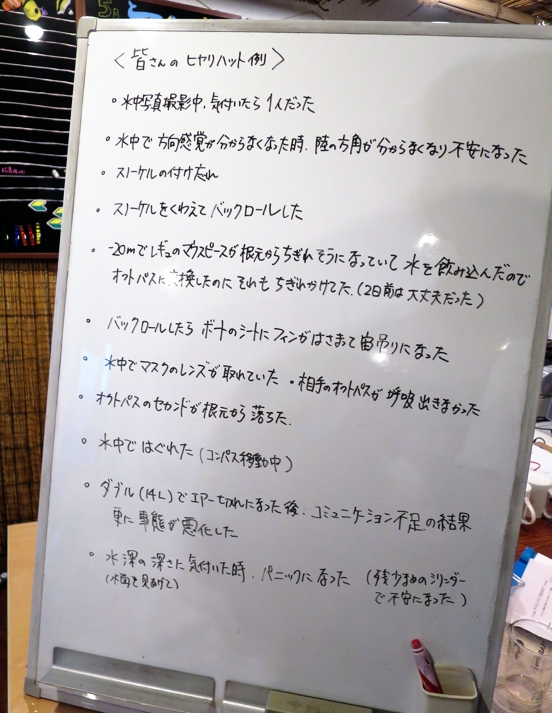 〈皆さんの ヒヤリハット例〉
・水中写真撮影中、気付いたら 1人だった
・水中で 方向感覚が分からなくなった時、陸の方角が分からなくなり 不安になった
・スノーケルの付け忘れ
・スノーケルをくわえて バックロールした
・-20mで レギュのマウスピースが 根元からちぎれそうになっていて 水を飲み込んだので
オクトパスに交換したのに それも ちぎれかけてた。(2日前は大丈夫だった)
・バックロールしたら ボートのシートに フィンがはさまって 宙吊りになった
・水中で マスクのレンズが 取れていた ・相手のオクトパスが 呼吸 出きなかった
・オクトパスのセカンドが 根元から 落ちた。
・水中で はぐれた (コンパス移動中)
・ダブル(14L)で エアー切れになった後、コミュニケーション不足の結果
更に 事態が 悪化した
・水深の 深さに 気付いた時、パニックになった (残少なめのシリンダー
(水面を見あげて) で 不安になった)